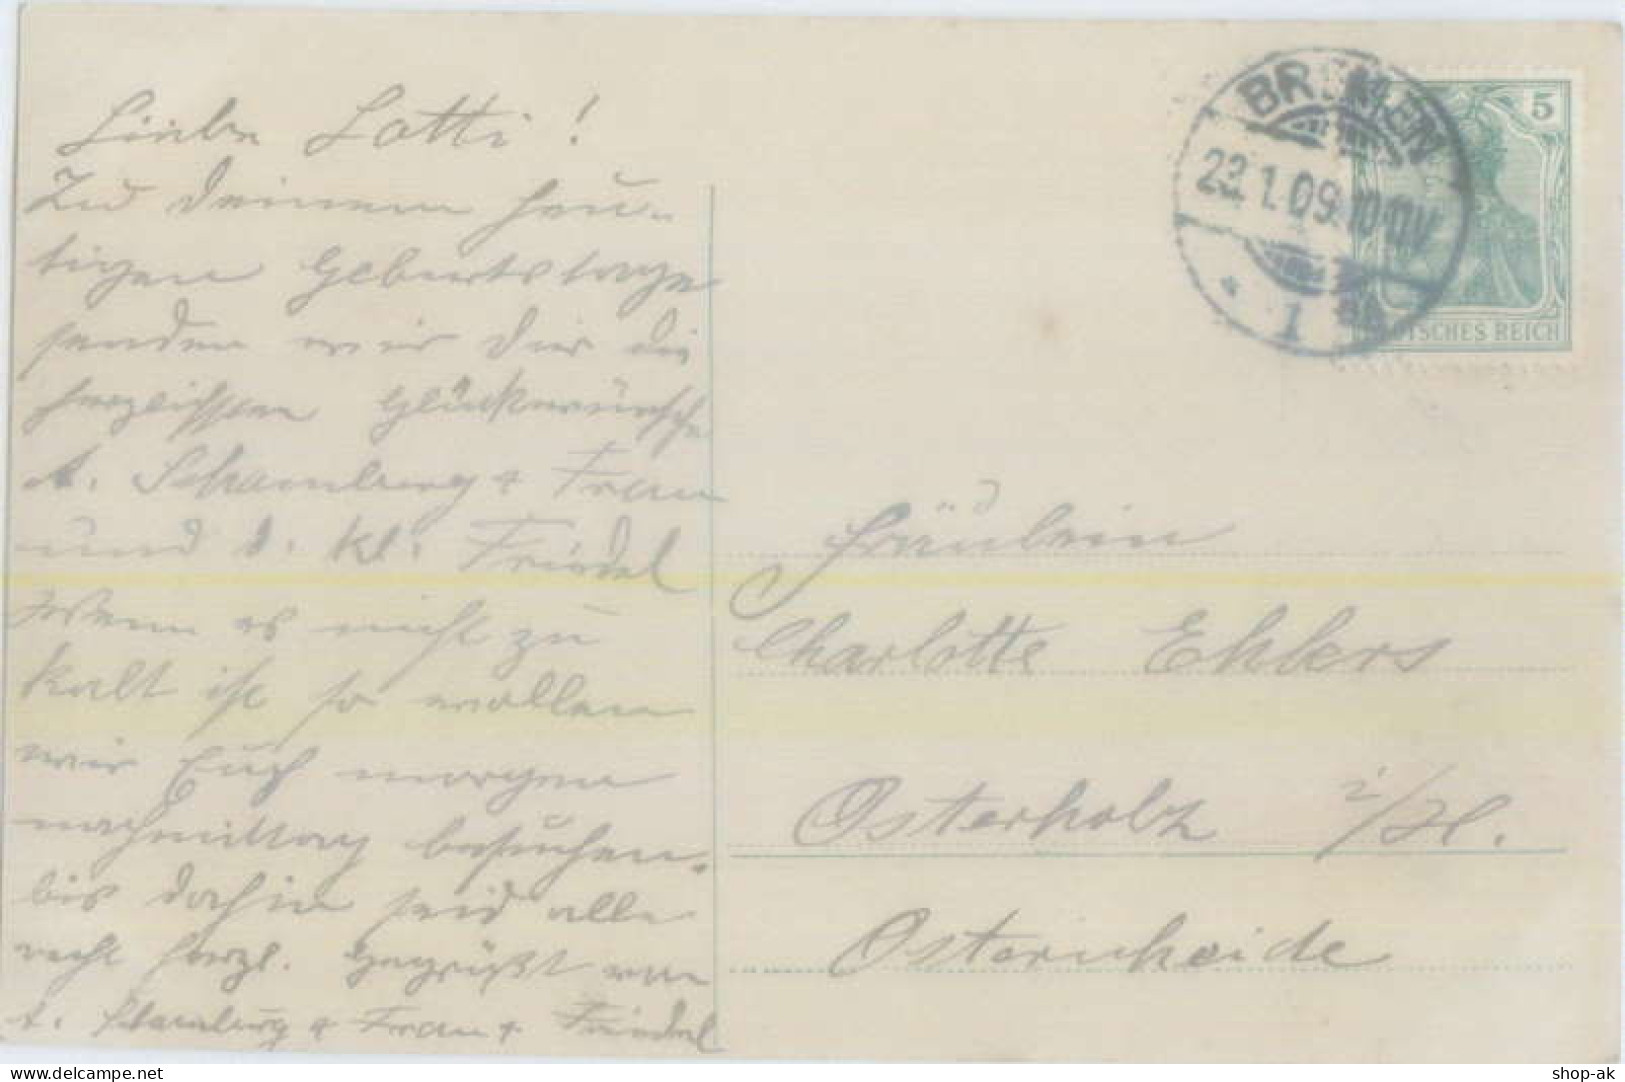 Liebe Lotti!
Zu deinem heu-
tigen Geburtstage
senden wir Dir die
herzlichsten Glückwünsche
A. Schamberg + Frau
und d. kl. Friedel
Wenn es nicht zu
kalt ist so wollen
wir Euch morgen
nachmittag besuchen.
bis dahin seid alle
recht herzl. gegrüßt von
A. Schamberg + Frau + Friedel
BREMEN
1.09. 10-11V
1
5
DEUTSCHES REICH
Fräulein
Charlotte Ehlers
Osterholz i/H.
Osterheide
delcampe.net
shop-ak